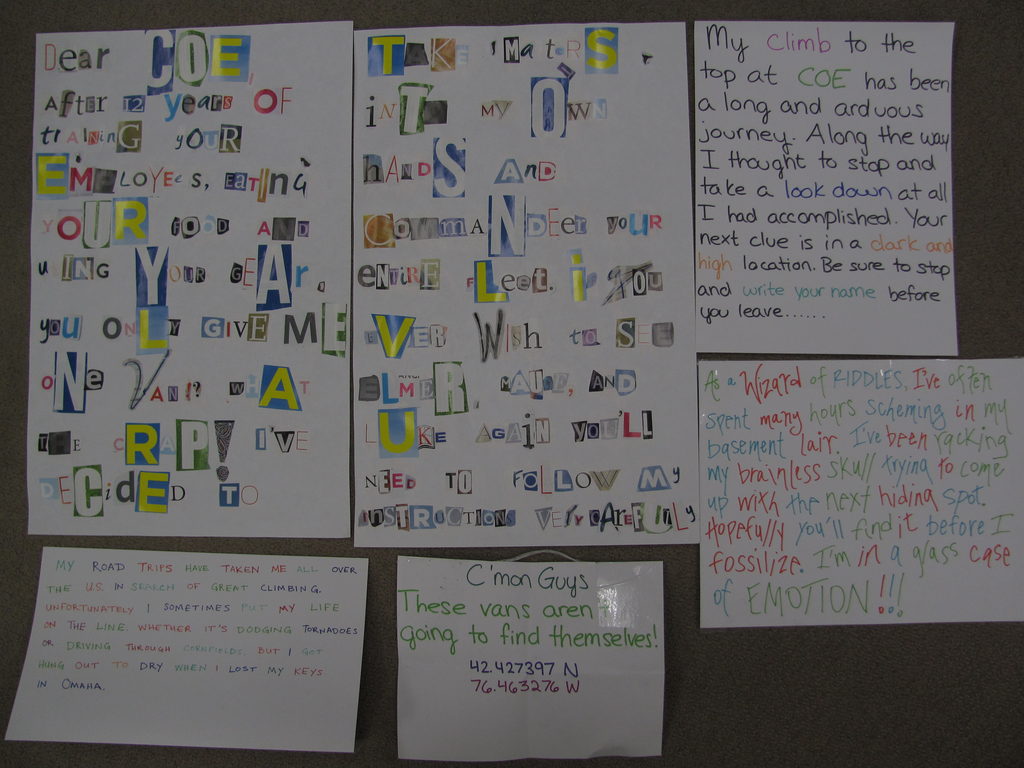 Dear COE,
After 12 years OF
traINinG yOUR
EMPLOYEEs, EATING
YOUR FOOD AND
usING YOUR GEAr.
you ONLY GIVE ME
oNe VAN!? wHAT
THE CRAP! I'VE
DECidED TO
TAKE MaTtErS
inTO MY OWN
hANDS AND
COMMANDEEr yoUR
ENTIRE FLeet. iF YOU
EVER WIsh to SEE
ELMER, MAIDE, AND
LUKE AGAiN YOU'LL
NEED TO FOLLOW My
INSTRUCTIONS VERy CAREFULLY
My Climb to the
top at COE has been
a long and arduous
journey. Along the way
I thought to stop and
take a look down at all
I had accomplished. Your
next clue is in a dark and
high location. Be sure to stop
and write your name before
you leave......
As a Wizard of RIDDLES, I've often
spent many hours scheming in my
basement lair. I've been racking
my brainless skull trying to come
up with the next hiding spot.
Hopefully you'll find it before I
fossilize. I'm in a glass case
of EMOTION!!!
MY ROAD TRIPS HAVE TAKEN ME ALL OVER
THE U.S. IN SEARCH OF GREAT CLIMBING.
UNFORTUNATELY I SOMETIMES PUT MY LIFE
ON THE LINE. WHETHER IT'S DODGING TORNADOES
OR DRIVING THROUGH CORNFIELDS. BUT I GOT
HUNG OUT TO DRY WHEN I LOST MY KEYS
IN OMAHA.
C'mon Guys
These vans aren't
going to find themselves!
42.427397 N
76.463276 W